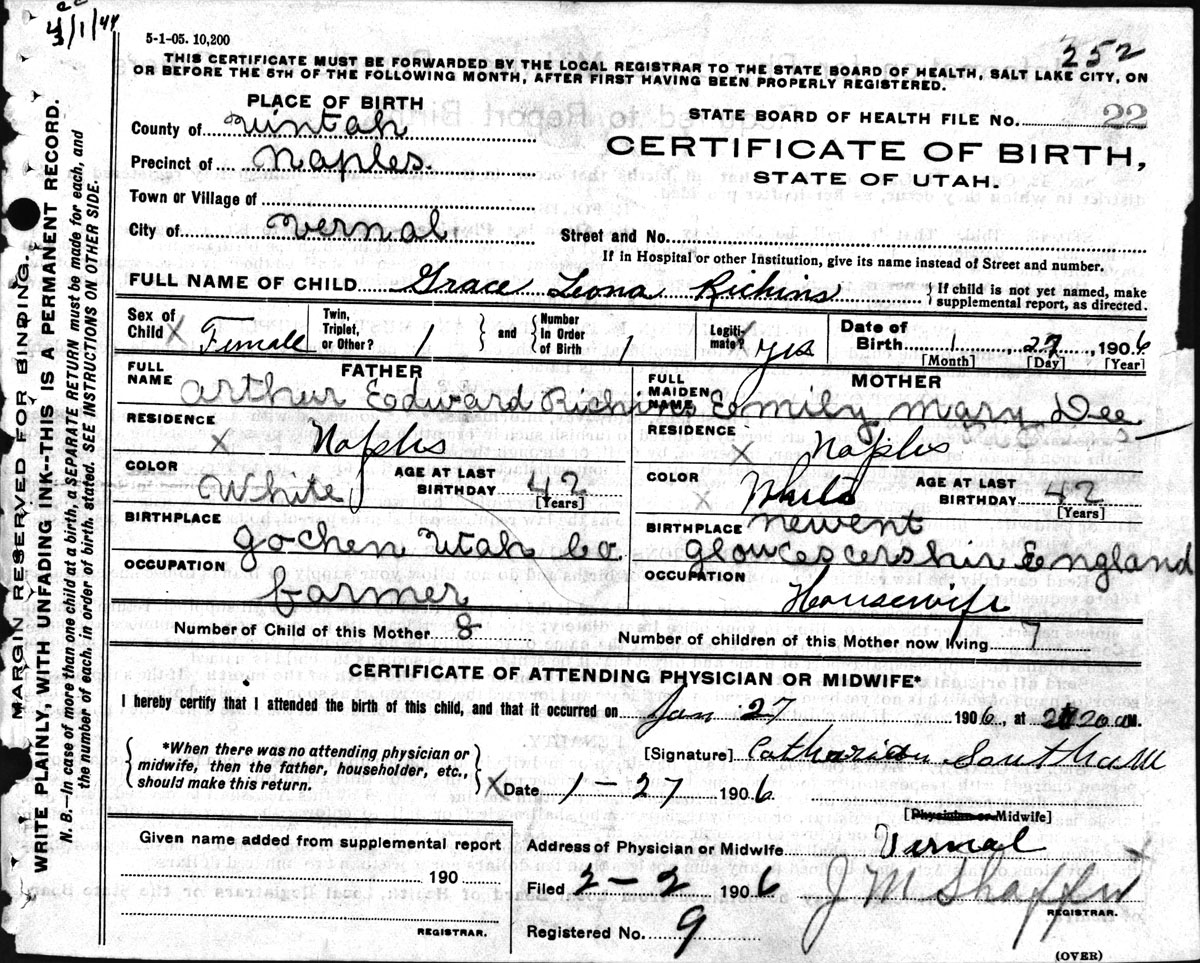 4/1/44
5-1-05. 10,200
252
THIS CERTIFICATE MUST BE FORWARDED BY THE LOCAL REGISTRAR TO THE STATE BOARD OF HEALTH, SALT LAKE CITY, ON
OR BEFORE THE 5TH OF THE FOLLOWING MONTH, AFTER FIRST HAVING BEEN PROPERLY REGISTERED.
PLACE OF BIRTH
County of Uintah
Precinct of Naples.
Town or Village of
City of Vernal.
STATE BOARD OF HEALTH FILE No. 22
CERTIFICATE OF BIRTH,
STATE OF UTAH.
Street and No.
If in Hospital or other Institution, give its name instead of Street and number.
FULL NAME OF CHILD Grace Leona Richins { If child is not yet named, make supplemental report, as directed.
Sex of Child X Female Twin, Triplet, or Other? 1 } and { Number In Order of Birth 1 Legiti- mate? X yes Date of Birth 1 27, 1906
[Month] [Day] [Year]
FATHER
FULL NAME Arthur Edward Richins
RESIDENCE X Naples
COLOR White AGE AT LAST BIRTHDAY 42
[Years]
BIRTHPLACE Gochen Utah Co.
OCCUPATION farmer
MOTHER
FULL MAIDEN NAME Emily Mary Dee
RESIDENCE X Naples
COLOR X White AGE AT LAST BIRTHDAY 42
[Years]
BIRTHPLACE Newent
Gloucestershir England
OCCUPATION Housewife
Number of Child of this Mother 8 Number of children of this Mother now living 7
CERTIFICATE OF ATTENDING PHYSICIAN OR MIDWIFE*
I hereby certify that I attended the birth of this child, and that it occurred on Jan 27 1906, at 20 AM.
{ *When there was no attending physician or
midwife, then the father, householder, etc.,
should make this return. }
[Signature] Southam
X Date 1-27 1906
[Physician or Midwife]
Given name added from supplemental report
190
REGISTRAR.
Address of Physician or Midwife Vernal
Filed 2-2 1906 J M Shaffer X
REGISTRAR.
Registered No. 9
(OVER)
MARGIN RESERVED FOR BINDING.
WRITE PLAINLY, WITH UNFADING INK--THIS IS A PERMANENT RECORD.
N. B.—In case of more than one child at a birth, a SEPARATE RETURN must be made for each, and
the number of each, in order of birth, stated. SEE INSTRUCTIONS ON OTHER SIDE.